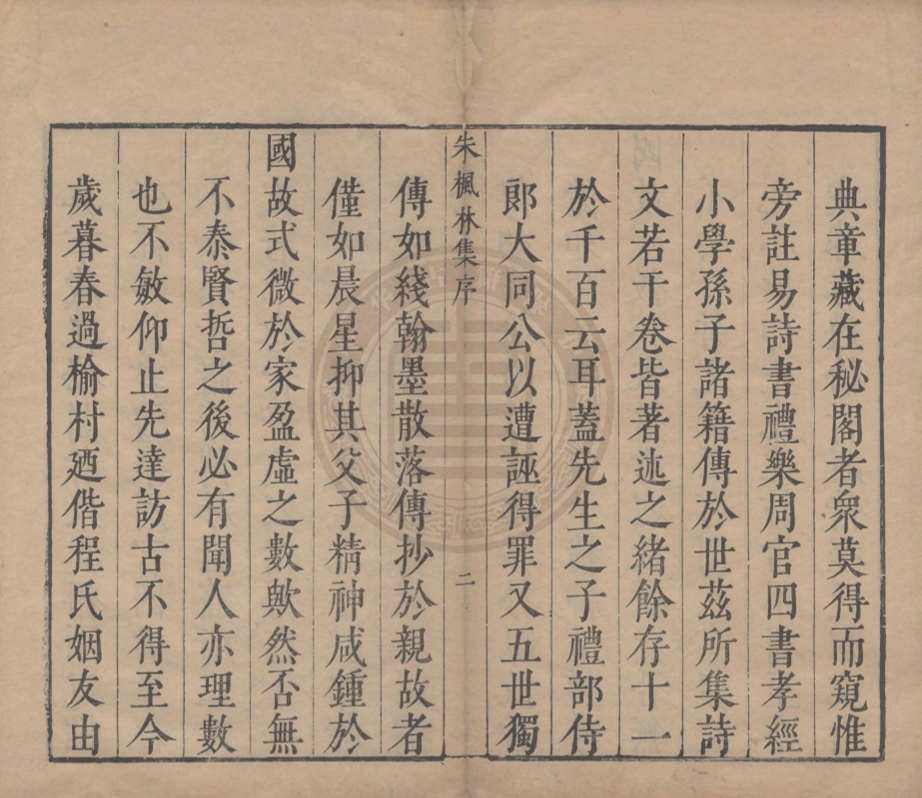 典章藏在秘閣者衆莫得而窺惟
旁註易詩書禮樂周官四書孝經
小學孫子諸籍傳於世茲所集詩
文若干卷皆著述之緒餘存十一
於千百云耳蓋先生之子禮部侍
郎大同公以遭誣得罪又五世獨
朱楓林集序
二
傳如綫翰墨散落傳抄於親故者
僅如晨星抑其父子精神咸鍾於
國故式微於家盈虛之數歟然否無
不泰賢哲之後必有聞人亦理數
也不敏仰止先達訪古不得至今
歲暮春過楡村廼偕程氏姻友由